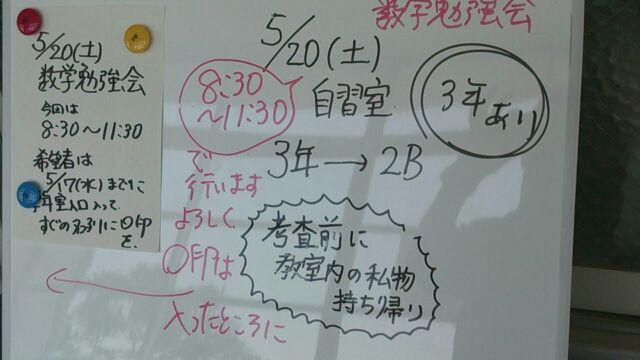 5/20(土)
数学勉強会
今回は
8:30〜11:30
希望者は
5/17(水)までに
年室入口入って
すぐの
に〇印
を、
数学勉強会
5/20(土)
8:30
〜11:30
自習室
3年→2B
3年
あり
で
行います
よろしく
〇印は
入ったところに
考査前に
教室内の私物
持ち帰り